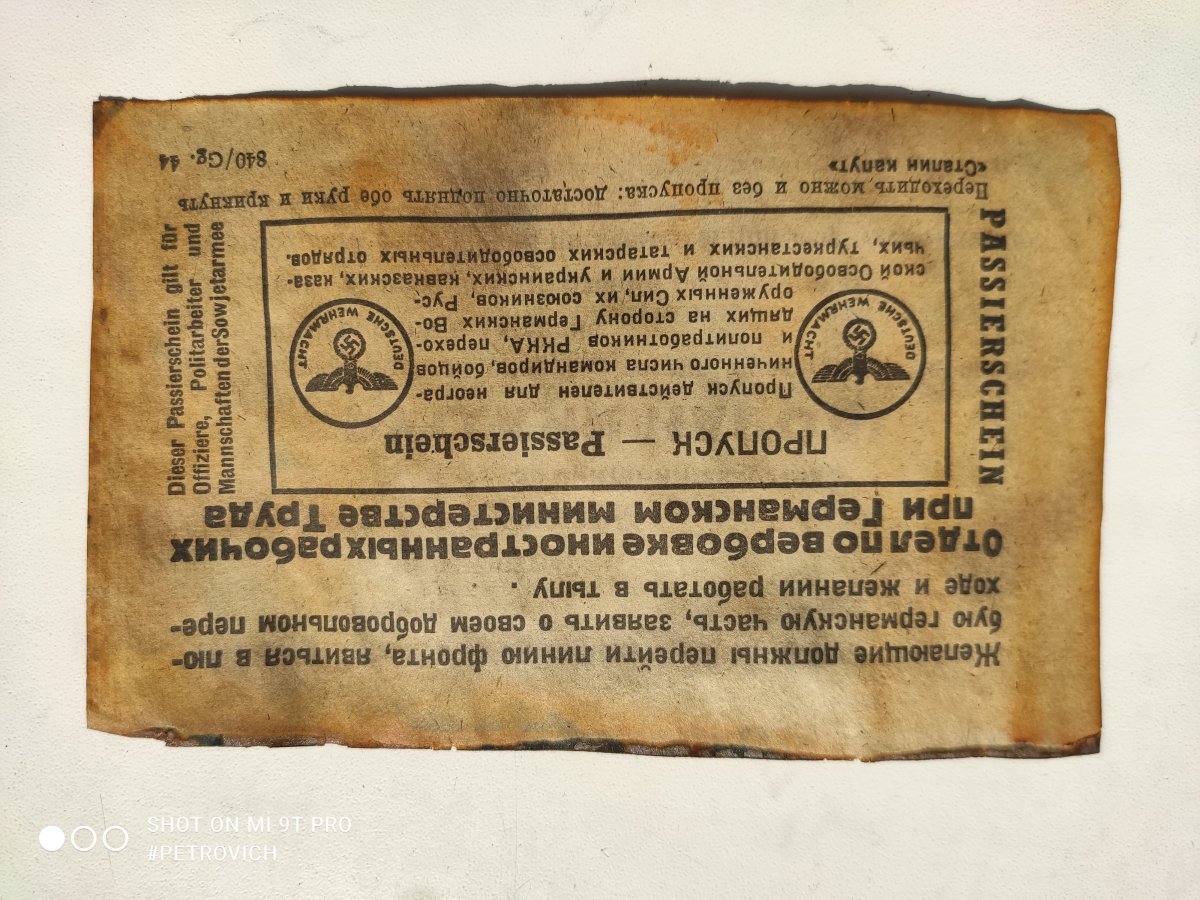 Желающие должны перейти линию фронта, явиться в лю-
бую германскую часть, заявить о своем добровольном пере-
ходе и желании работать в тылу .
Отдел по вербовке иностранных рабочих
при Германском министерстве Труда
PASSIERSCHEIN
ПРОПУСК — Passierschein
DEUTSCHE WEHRMACHT
Пропуск действителен для неогра-
ниченного числа командиров, бойцов
и политработников РККА, перехо-
дящих на сторону Германских Во-
оруженных Сил, их союзников, Рус-
ской Освободительной Армии и украинских, кавказских, каза-
чьих, туркестанских и татарских освободительных отрядов.
DEUTSCHE WEHRMACHT
Dieser Passierschein gilt für
Offiziere, Politarbeiter und
Mannschaften der Sowjetarmee
Переходить можно и без пропуска: достаточно поднять обе руки и крикнуть
«Сталин капут»
840/Gg. 44
SHOT ON MI-9T PRO
#PETROVICH